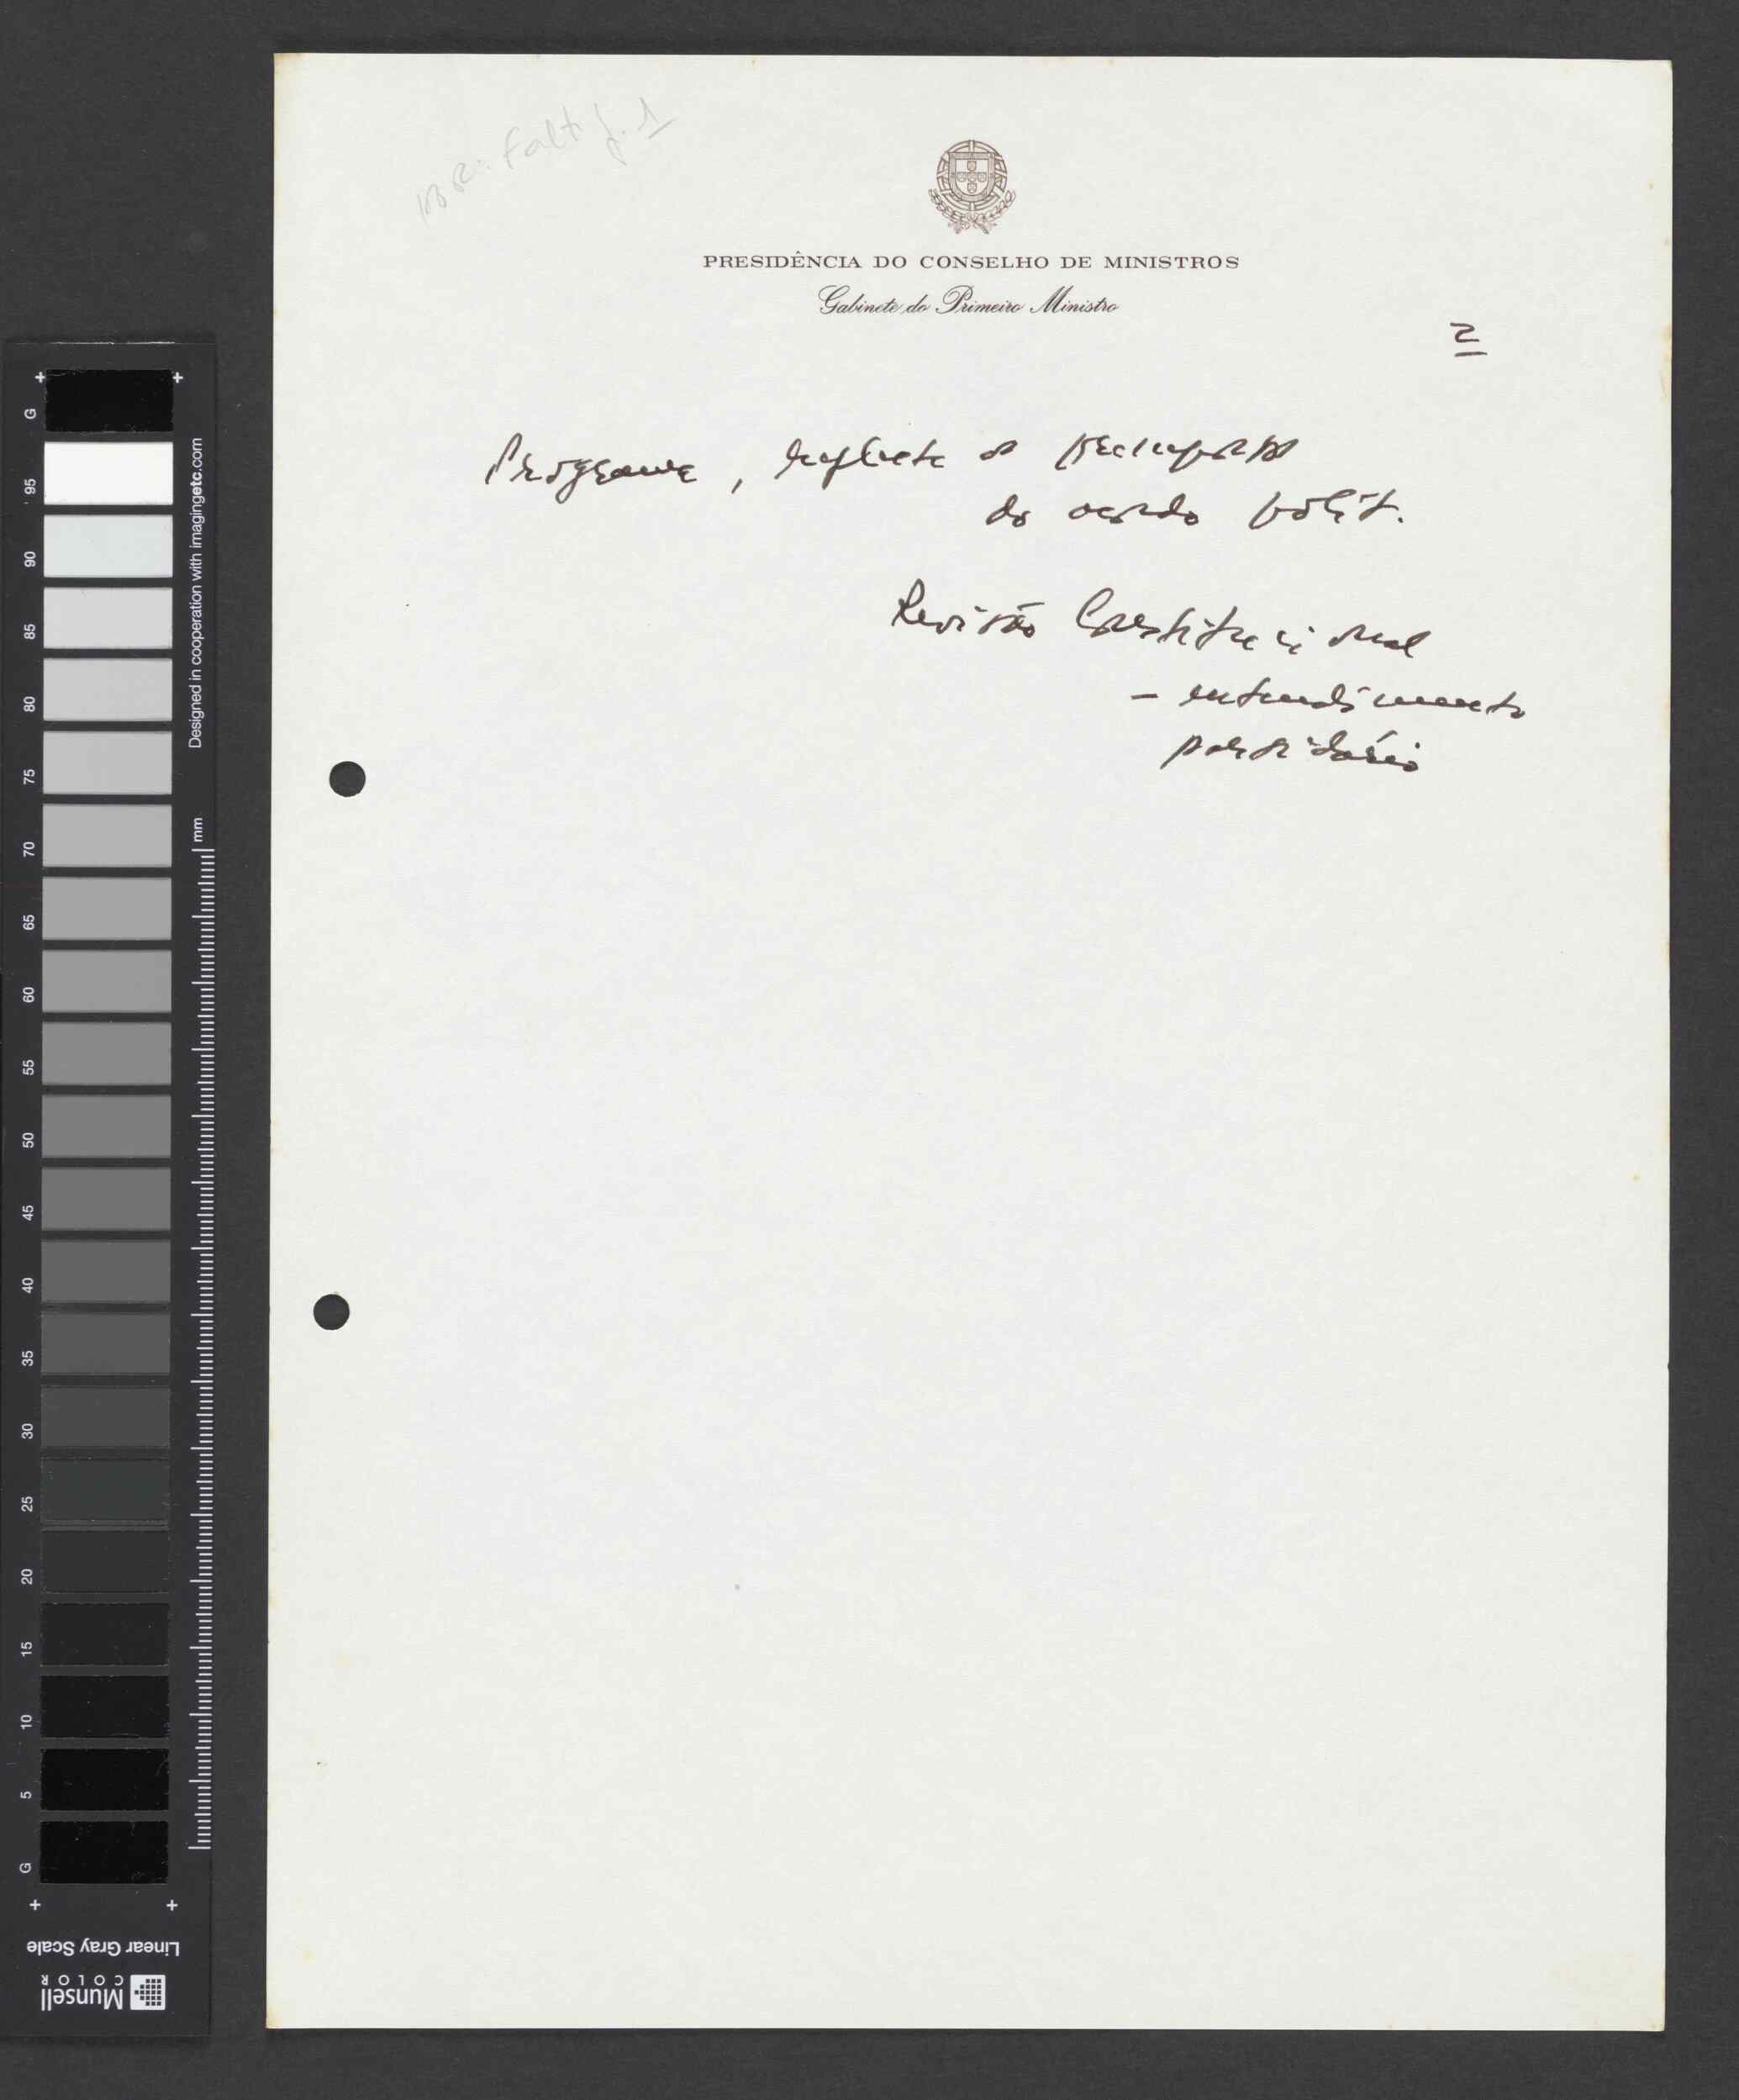 Falta f. 1
PRESIDÊNCIA DO CONSELHO DE MINISTROS
Gabinete do Primeiro Ministro
2
Programa, reflecte os
do acordo polít.
Revisão Constitucional
- entendimento
partidário
Designed in cooperation with imagingetc.com
mm
G 95 90 85 80 75 70 65 60 55 50 45 40 35 30 25 20 15 10 5 G
Linear Gray Scale
Munsell
COLOR